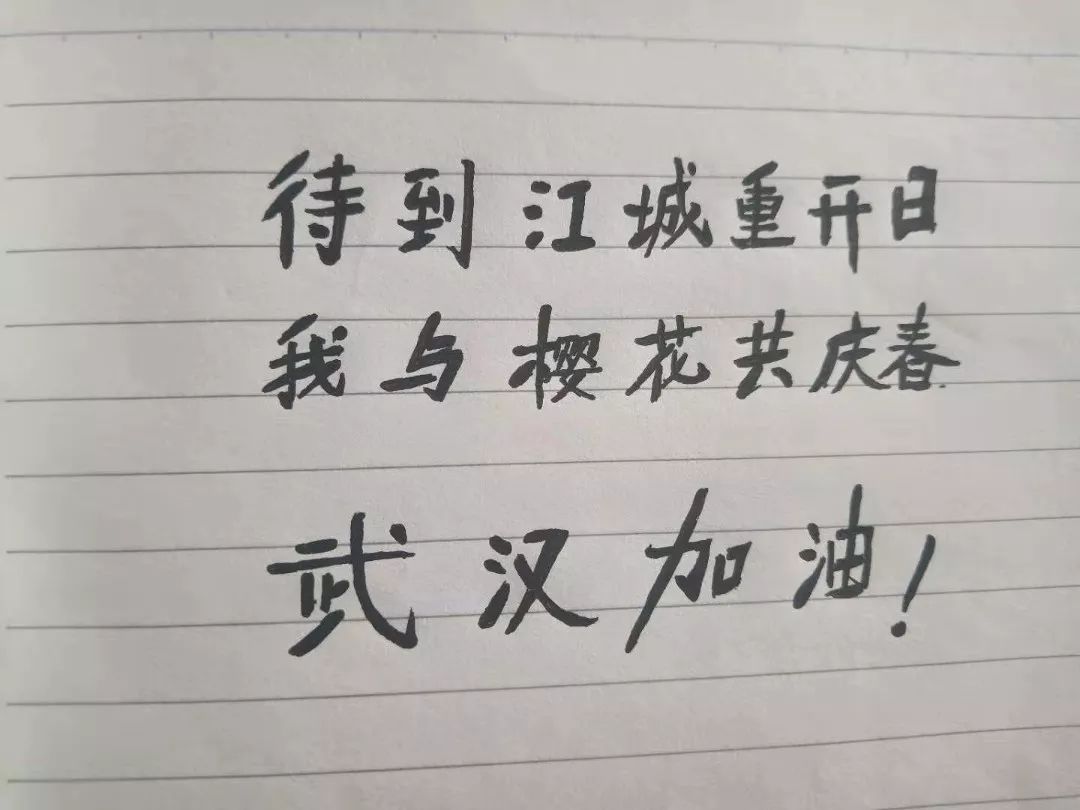 待到江城重开日
我与樱花共庆春
武汉加油!